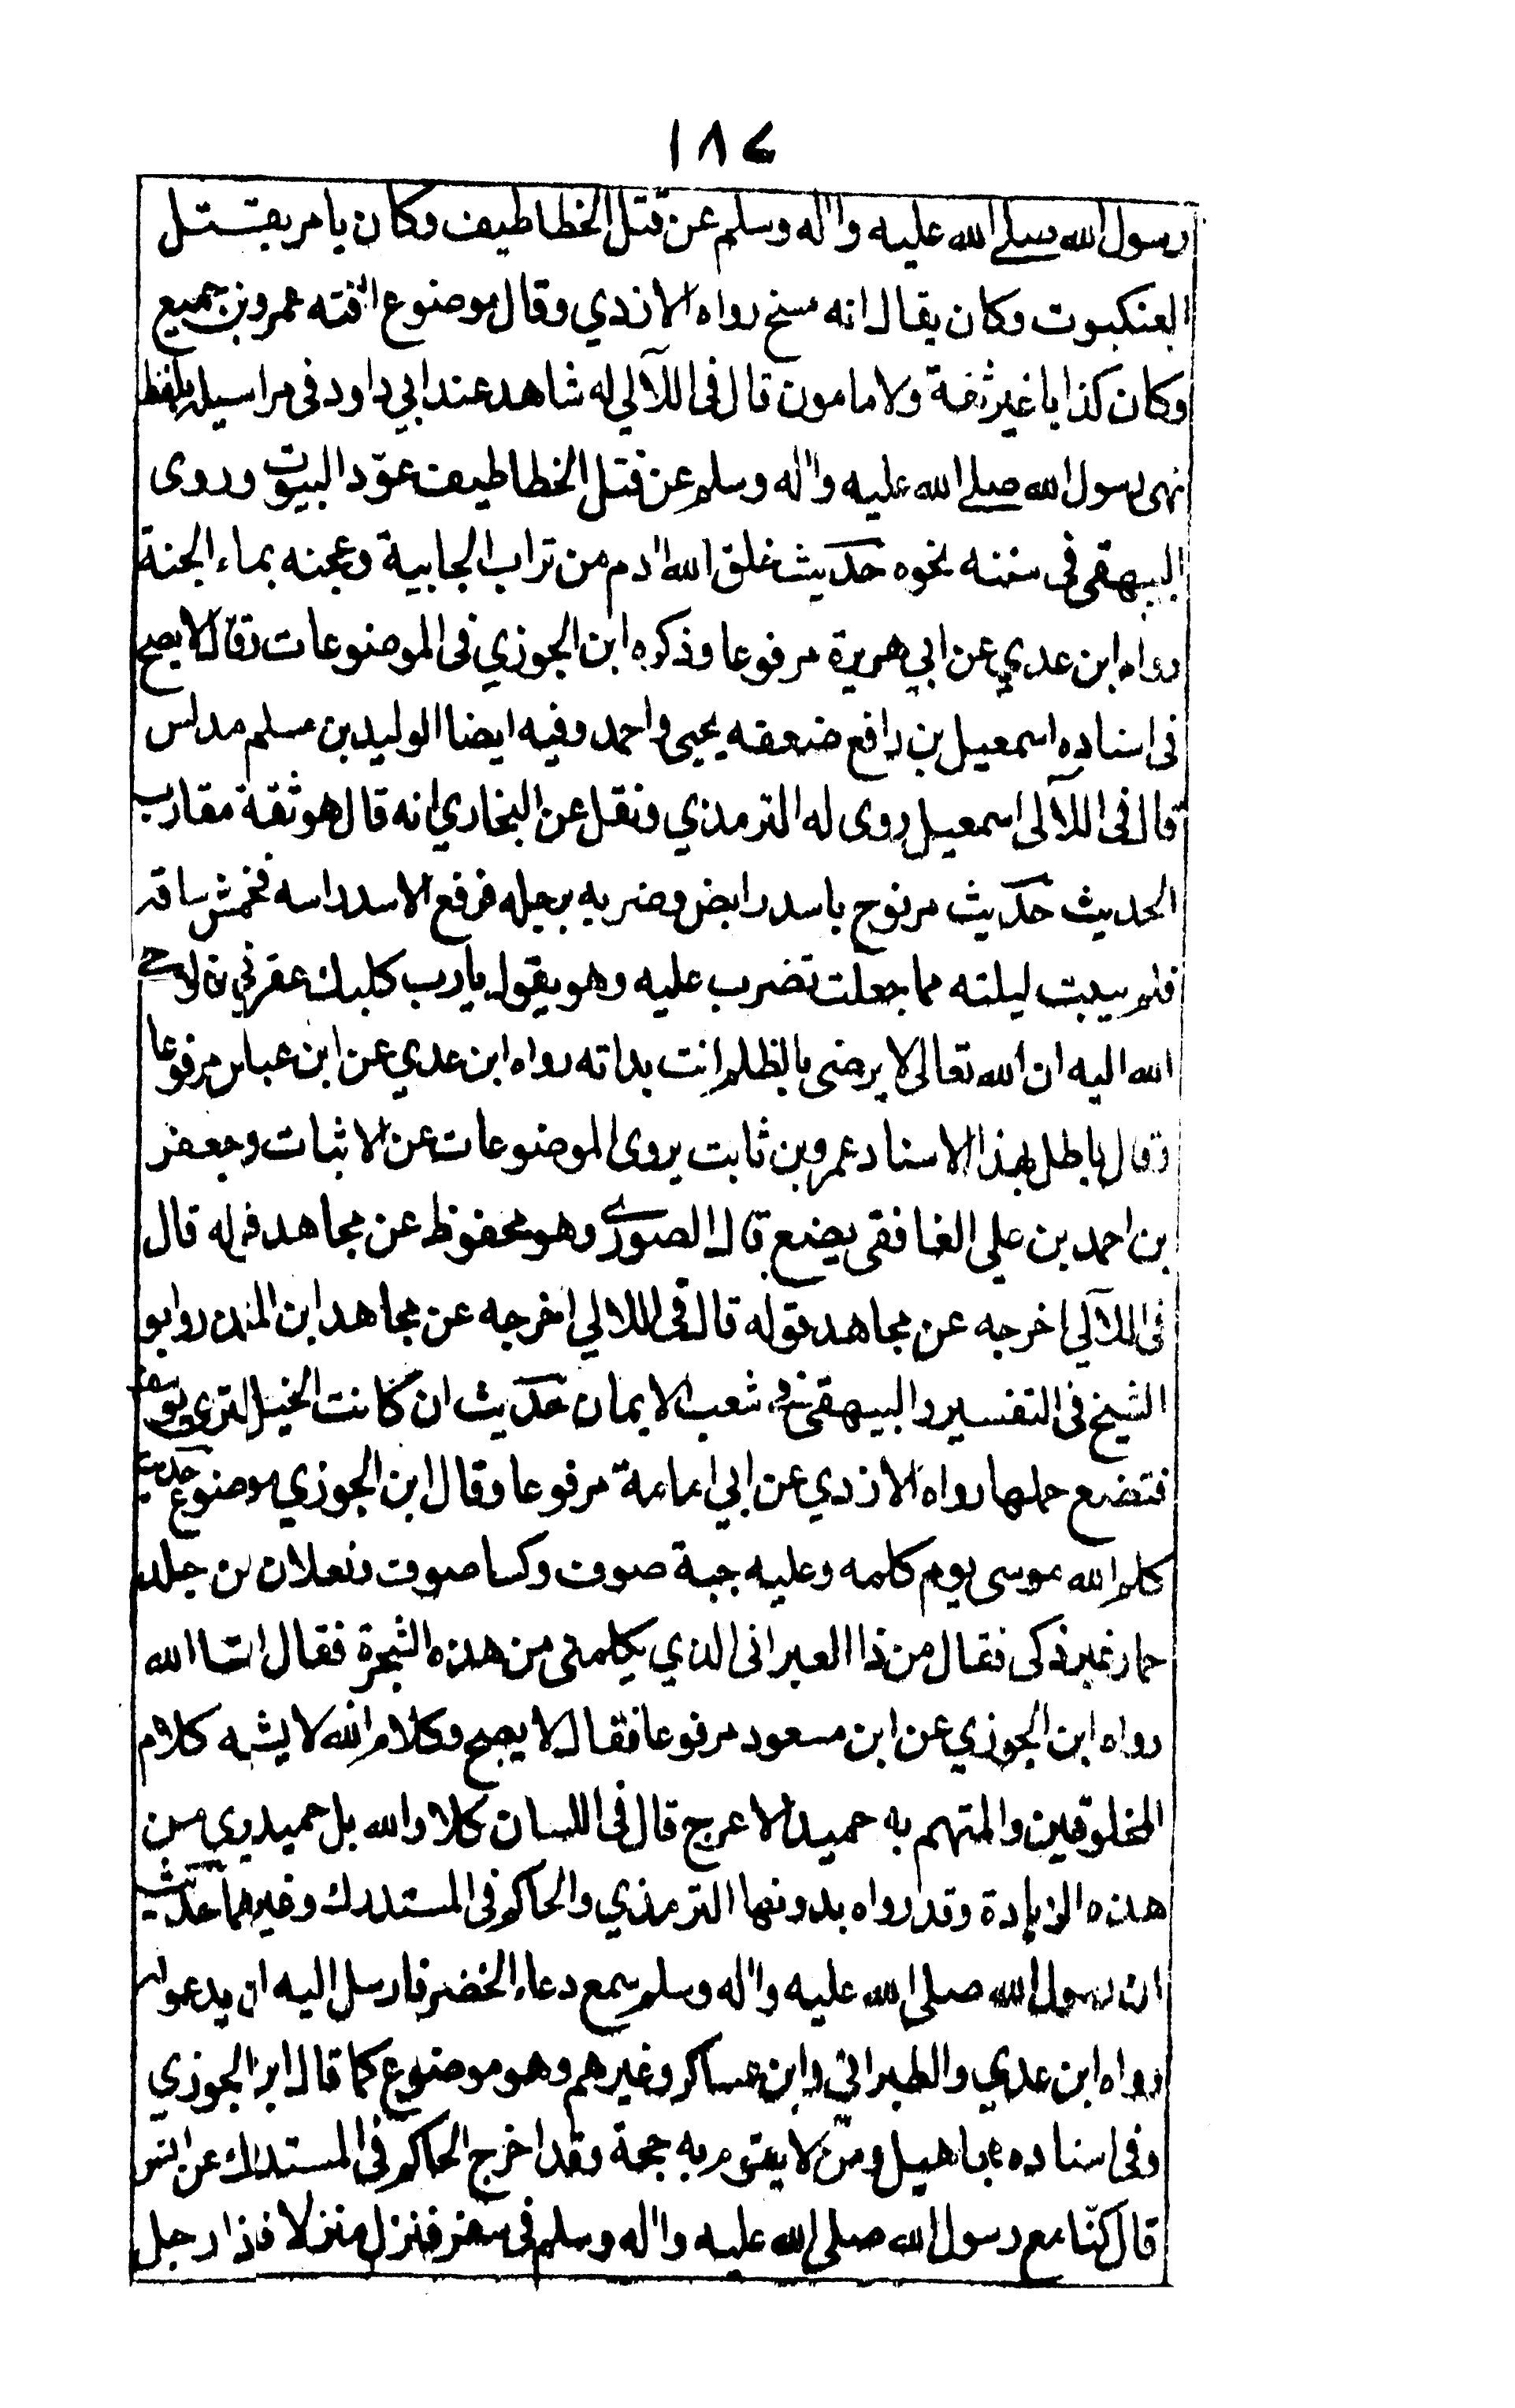 ١٨٤
رسول الله صلى الله عليه واله وسلم عن قتل الخطاطيف وكان يامر بقتل
العنكبوت وكان يقال انه مسخ رواه الازدي وقال موضوع افته عمرو بن جميع
وكان كذابا غير ثقة ولا مامون قال في اللآلي له شاهد عند ابي داود في مراسيله بلفظ
نهى رسول الله صلى الله عليه واله وسلم عن قتل الخطاطيف عوّد البيوت وروى
البيهقي في سننه نحوه حديث خلق الله ادم من تراب الجابية وعجنه بماء الجنة
رواه ابن عدي عن ابي هريرة مرفوعا وذكره ابن الجوزي في الموضوعات وقال لا يصح
في اسناده اسمعيل بن رافع ضعفه يحيى واحمد وفيه ايضا الوليد بن مسلم مدلس
قال في اللآلى اسمعيل روى له الترمذي ونقل عن البخاري انه قال هو ثقة مقارب
الحديث حديث مر نوح باسد رابض وضربه برجله فرفع الاسد راسه فخمش ساقه
فلم يبت ليلته مما جعلت تضرب عليه وهو يقول يارب كلبك عقرني فاوحى
الله اليه ان الله تعالى لا يرضى بالظلم انت بداته رواه ابن عدي عن ابن عباس مرفوعا
وقال باطل بهذا الاسناد عمرو بن ثابت يروى الموضوعات عن الاثبات وجعفر
بن احمد بن علي الغافقى يضع قال الصورى وهو محفوظ عن مجاهد قوله قال
في اللآلي اخرجه عن مجاهد قوله قال في اللالي اخرجه عن مجاهد ابن المنذر وابو
الشيخ في التفسير والبيهقي في شعب الايمان حديث ان كانت الخيل لترى
فتضع حملها رواه الازدي عن ابي امامة مرفوعا وقال ابن الجوزي موضوع حديث
كلم الله موسى يوم كلمه وعليه جبة صوف وكسا صوف ونعلان من جلد
حمار غير ذكى فقال من ذا العبرانى الذي يكلمنى من هذه الشجرة فقال انا الله
رواه ابن الجوزي عن ابن مسعود مرفوعا فقال لا يصح وكلام الله لا يشبه كلام
المخلوقين والمتهم به حميد الاعرج قال في اللسان كلا والله بل حميد بري من
هذه الزيادة وقد رواه بدونها الترمذي والحاكم في المستدرك وغيرهما حديث
ان رسول الله صلى الله عليه واله وسلم سمع دعاء الخضر فارسل اليه ان يدعو له
رواه ابن عدي والطبراني وابن عساكر وغيرهم وهو موضوع كما قال ابن الجوزي
وفى اسناده مجاهيل ومن لا يقوم به حجة وقد اخرج الحاكم في المستدرك عن انس
قال كنّا مع رسول الله صلى الله عليه واله وسلم في سفر فنزل منزلا فاذا رجل